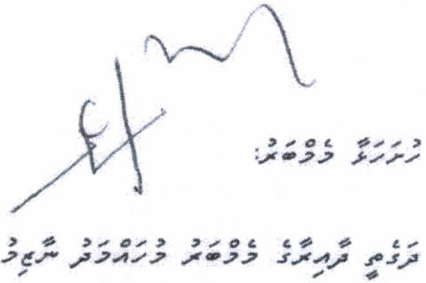 ހުށަހަޅާ މެމްބަރު:
ދަގެތީ ދާއިރާގެ މެމްބަރު މުހައްމަދު ނާޒިމު